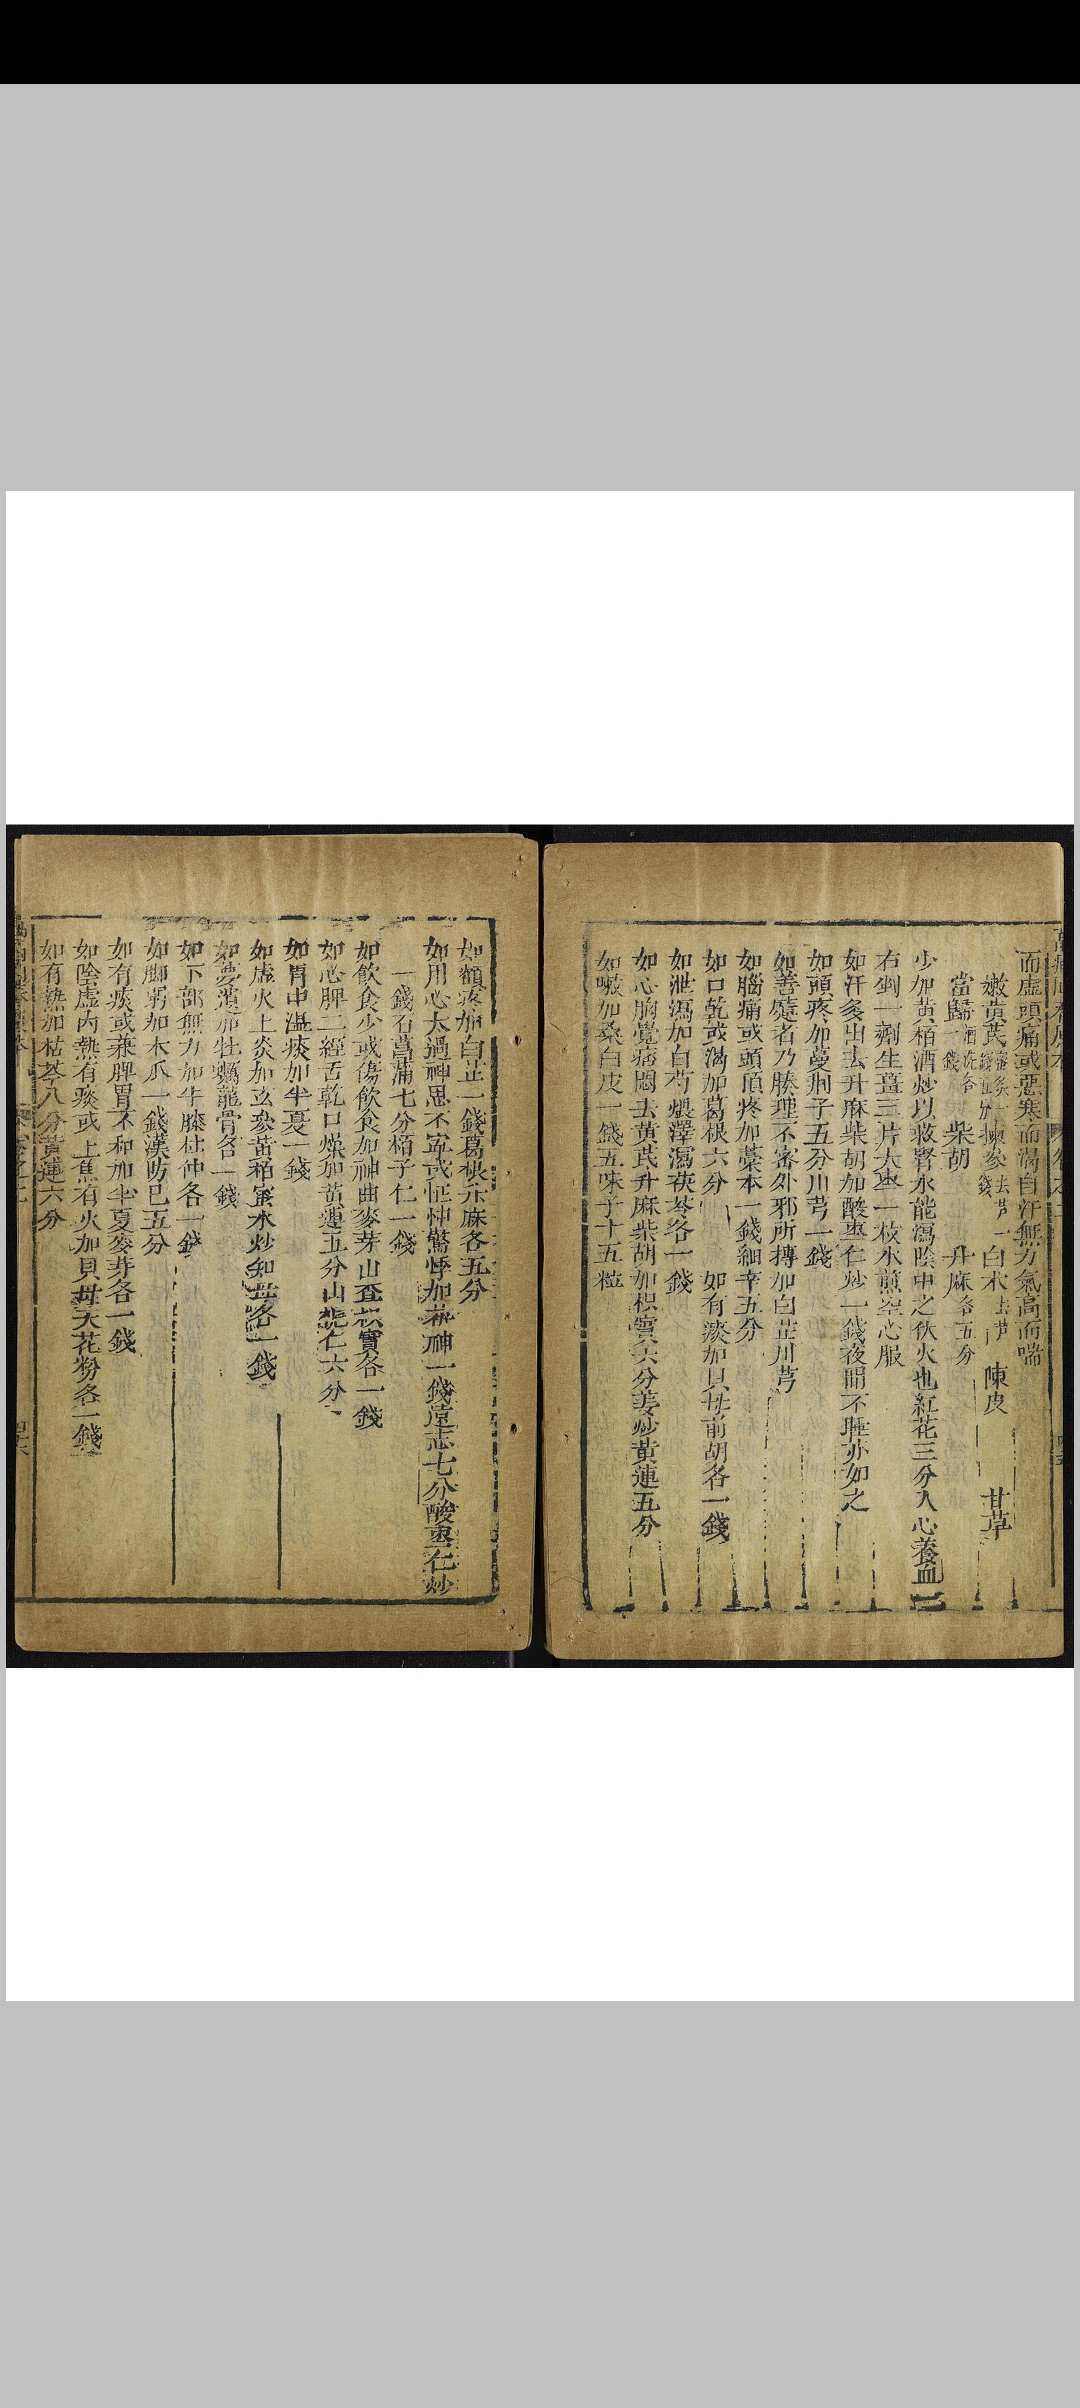 而虛頭痛或惡寒而渴自汗無力氣高而喘
嫩黃芪蜜炙一錢五分 人參去芦一錢 白朮去芦 陳皮 甘草
當歸酒洗各一錢 柴胡 升麻各五分
右剉一劑生薑三片大棗一枚水煎空心服
少加黃栢酒炒以救腎水能瀉陰中之伏火也紅花三分入心養血
如汗多出去升麻柴胡加酸棗仁炒一錢夜間不睡亦如之
如頭疼加蔓荆子五分川芎一錢
如善嚏者乃腠理不密外邪所搏加白芷川芎
如腦痛或頭頂疼加藁本一錢細辛五分
如口乾或渴加葛根六分 如有痰加貝母前胡各一錢
如泄瀉加白芍煨澤瀉茯苓各一錢
如心胸覺痞悶去黃芪升麻柴胡加枳實六分姜炒黃連五分
如嗽加桑白皮一錢五味子十五粒
如額疼加白芷一錢葛根升麻各五分
如用心太過神思不寧或怔忡驚悸加茯神一錢遠志七分酸棗仁炒
一錢石菖蒲七分栢子仁一錢
如飲食少或傷飲食加神曲麥芽山查枳實各一錢
如心脾二經舌乾口燥加黃連五分山梔仁六分
如胃中濕痰加半夏一錢
如虛火上炎加玄參黃栢蜜水炒知母各一錢
如夢遺加牡蠣龍骨各一錢
如下部無力加牛膝杜仲各一錢
如脚弱加木瓜一錢漢防已五分
如有痰或兼脾胃不和加半夏麥芽各一錢
如陰虛內熱有痰或上焦有火加貝母天花粉各一錢
如有熱加枯芩八分黃連六分